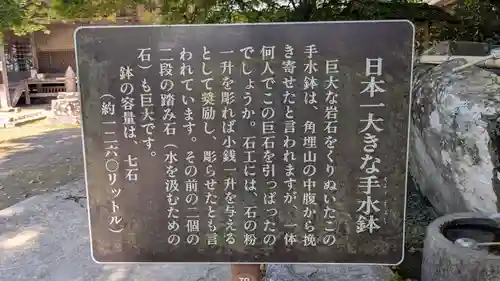 日本一大きな手水鉢
巨大な岩石をくりぬいたこの
手水鉢は、角埋山の中腹から挽
き寄せたと言われますが、一体
何人でこの巨石を引っぱったの
でしょうか。石工には、石の粉
一升を彫れば小銭一升を与える
として奨励し、彫らせたとも言
われています。その前の二個の
二段の踏み石（水を汲むための
石）も巨大です。
鉢の容量は、七石
（約一二六〇リットル）